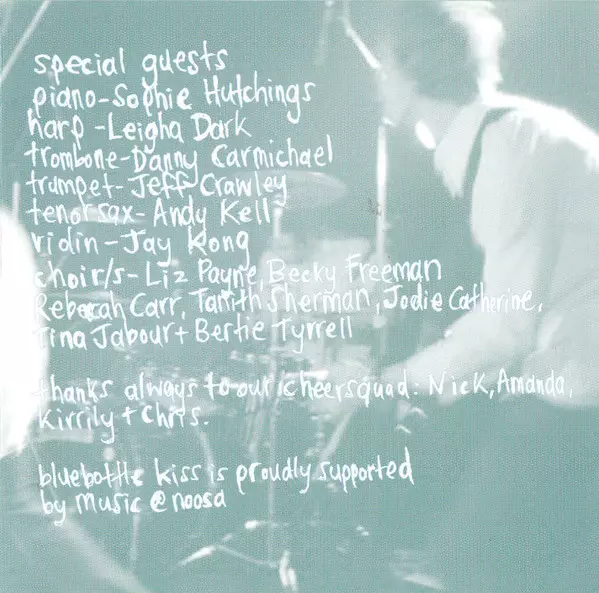 special guests
piano-Sophie Hutchings
harp-Leigha Dark
trombone-Danny Carmichael
trumpet-Jeff Crawley
tenor sax-Andy Kell
violin-Jay Kong
choir/s-Liz Payne, Becky Freeman
Rebecah Carr, Tanith Sherman, Jodie Catherine,
Tina Jabour + Bertie Tyrrell
thanks always to our cheersquad: Nick, Amanda,
Kirrily + Chris.
bluebottle kiss is proudly supported
by music @ noosa